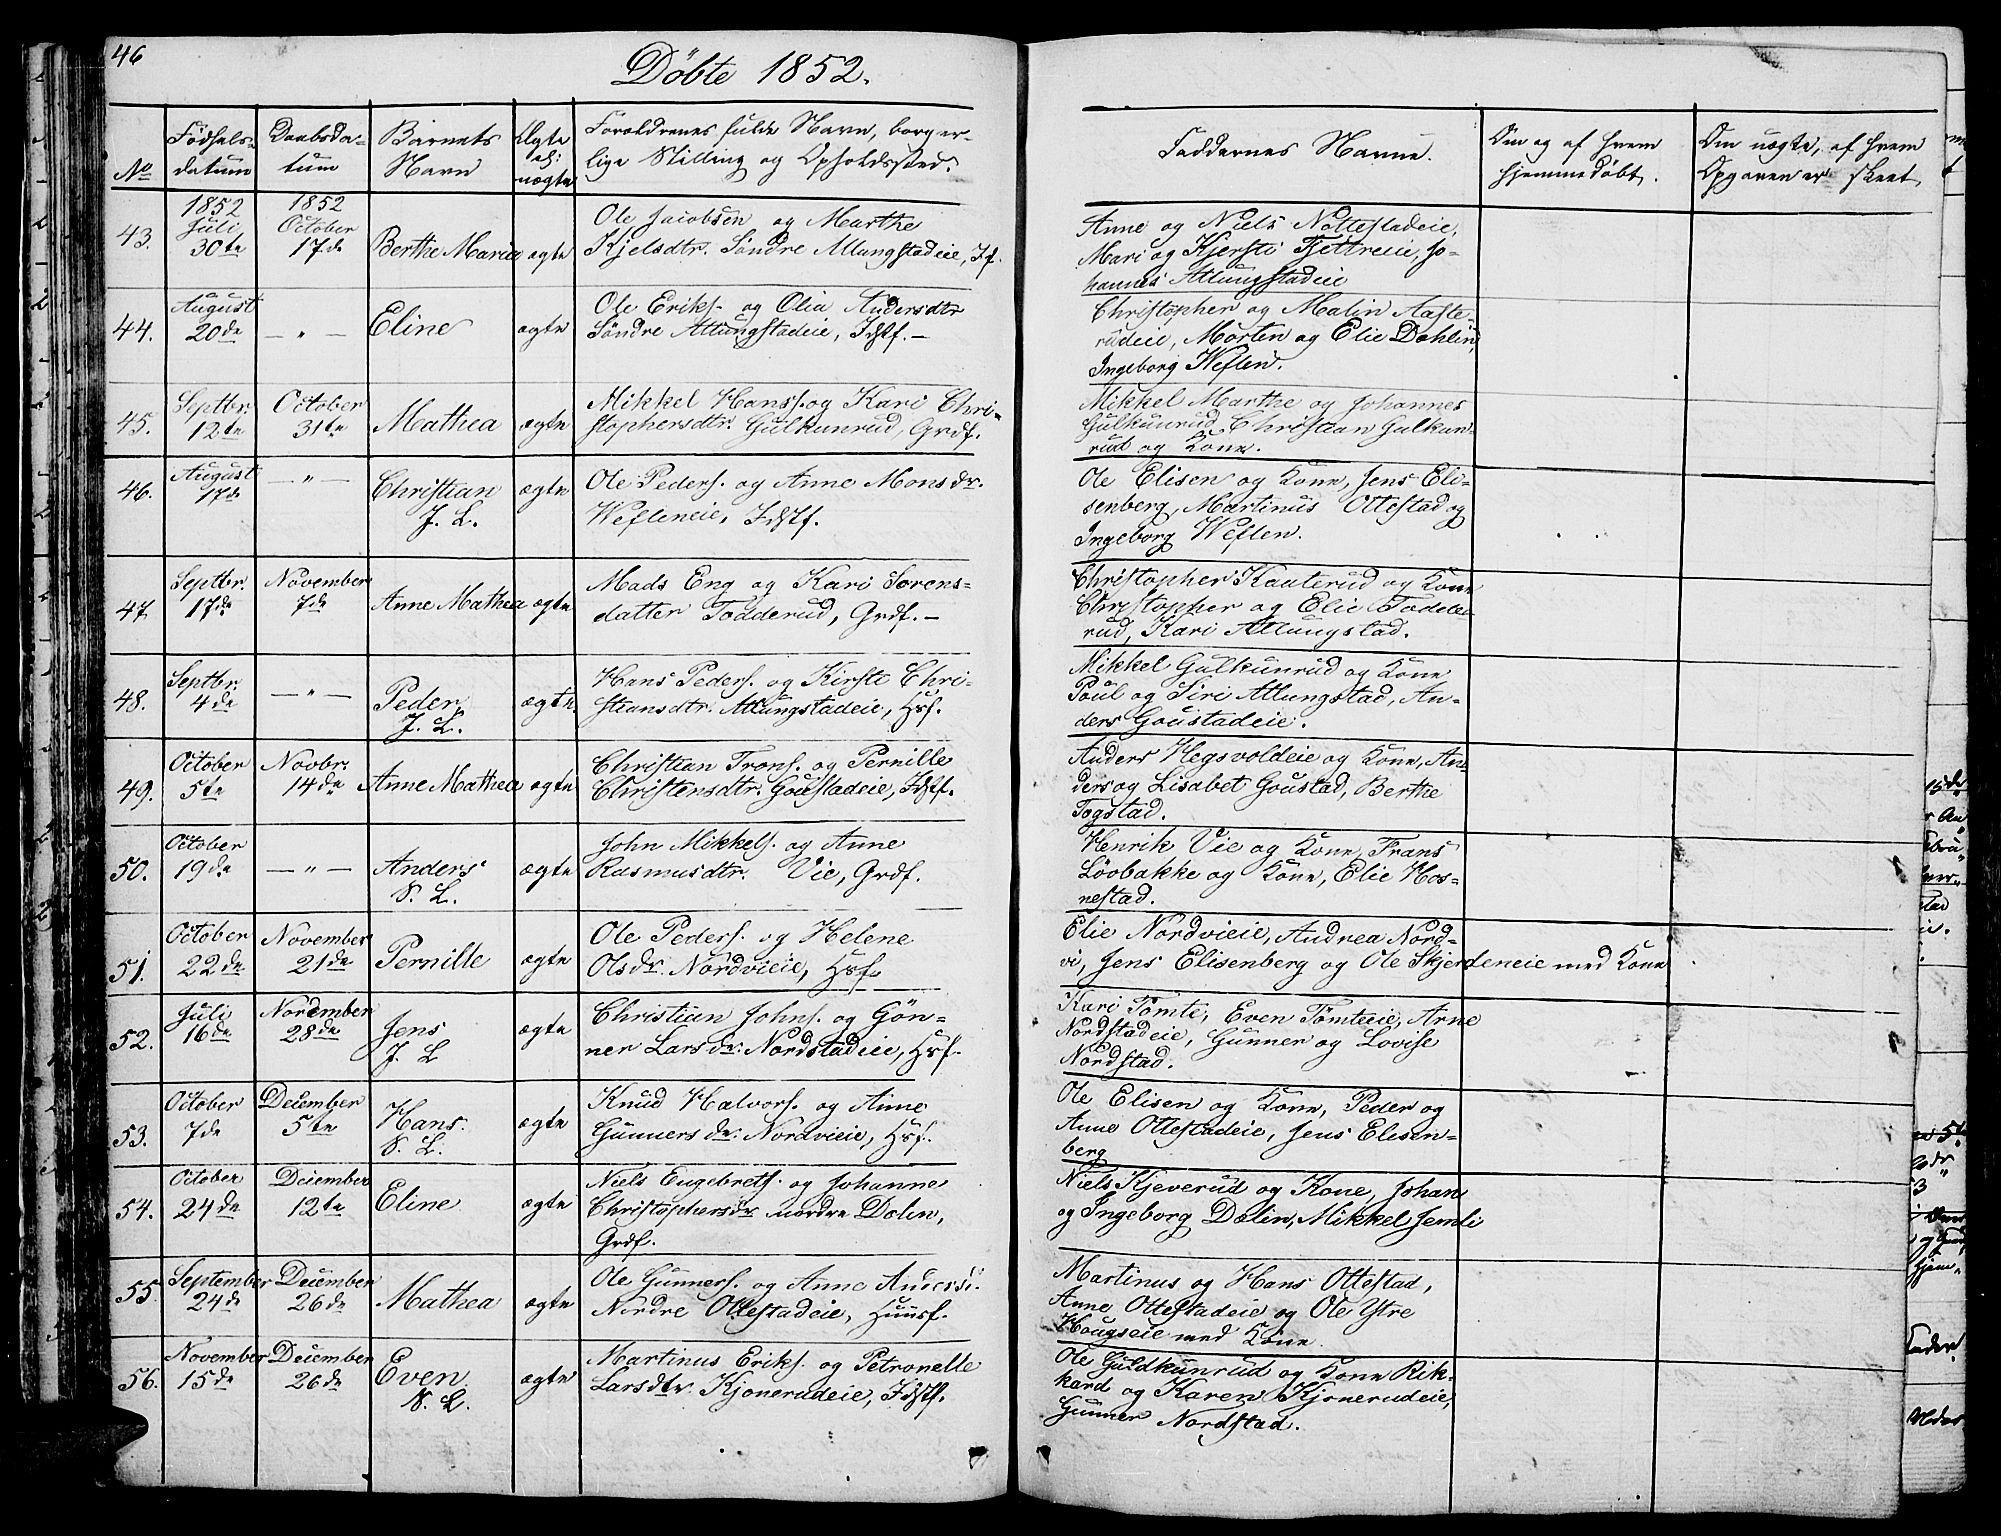 46
Döbte 1852.
No
Födsels-
datum
Daabsda-
tum
Barnets
Navn
Ægte
el:
uægte
Foroldrenes fulde Navn, borger-
lige Stilling og Opholdssted.
Faddernes Navne.
Om og af hvem
hjemmedöbt.
Om uægte, af hvem
Opgaven er skeet
43.
1852
Juli
30te
1852
October
17de
Berthe Maria
ægte
Ole Jacobsen og Marthe
Kjelsdtr. Söndre Atlungstadeie, If.
Anne og Niels Nottestadeie,
Mari og Kjersti Tjettreeie, Jo-
hannes Atlungstadeie
44.
August
20de
— " —
Eline
ægte
Ole Eriks. og Olia Andersdtr
Söndre Atlungstadeie, Idstf. —
Christopher og Malin Aaste-
rudeie, Morten og Elie Dahlin,
Ingeborg Weflen.
45.
Septbr.
12te
October
31te
Mathea
ægte
Mikkel Hanss. og Kari Chri-
stophersdtr. Gulkunrud, Grdf.
Mikkel Marthe og Johannes
Gulkunrud, Christian Gulkun-
rud og Kone.
46.
August
17de
— " —
Christian
J. L.
ægte
Ole Peders. og Anne Monsdr.
Wefleneie, Idstf.
Ole Elisen og Kone, Jens Eli-
senberg, Martinus Ottestad og
Ingeborg Weflen.
47.
Septbr.
17de
November
7de
Anne Mathea
ægte
Mads Eng og Kari Sorens-
datter Todderud, Grdf. —
Christopher Kauterud og Kone
Christopher og Elie Todde-
rud, Kari Atlungstad.
48.
Septbr.
4de
— " —
Peder
J. L.
ægte.
Hans Peders. og Kirste Chri-
stiansdtr. Atlungstadeie, Hsf.
Mikkel Gulkunrud og Kone
Poul og Siri Atlungstad, An-
ders Goustadeie.
49.
October
5te
Novbr.
14de
Anne Mathea
ægte
Christian Trons. og Pernille
Christensdtr. Goustadeie, Idstf.
Anders Hegsvoldeie og Kone, An-
ders og Lisabet Goustad, Berthe
Togstad.
50.
October
19de
— " —
Anders
S. L.
ægte
John Mikkels. og Anne
Rasmusdtr. Vie, Grdf.
Henrik Vie og Kone, Frans
Löobakke og Kone, Elie Hos-
nestad.
51.
October
22de
November
21de
Pernille
ægte
Ole Peders. og Helene
Olsdr. Nordvieie, Hsf.
Elie Nordvieie, Andrea Nord-
vi, Jens Elisenberg og Ole Skjerdeneie med Kone
52.
Juli
16de
November
28de
Jens
J. L
ægte
Christian Johns. og Gön-
ner Larsdr. Nordstadeie, Hsf.
Kari Tömte, Even Tömteeie, Arne
Nordstadeie, Gunner og Lovise
Nordstad.
53.
October
7de
December
5te
Hans.
S. L.
ægte
Knud Halvors. og Anne
Gunnersdr. Nordvieie, Hsf.
Ole Elisen og Kone, Peder og
Anne Ottestadeie, Jens Elisen-
berg
54.
October
24de
December
12te
Eline
ægte
Niels Engebrets. og Johanne
Christophersdr. nordre Dolin,
Grdf.
Niels Kjeverud og Kone, Johan
og Ingeborg Dolin, Mikkel Jemli
55.
September
24de
December
26de
Mathea
ægte
Ole Gunners. og Anne
Nordre Ottestadeie, Huusf.
Martinus og Hans Ottestad,
Anne Ottestadeie og Ole Ystre
Hougseie med Kone.
56.
November
15de
December
26de
Even
S. L.
ægte
Martinus Eriks. og Petronelle
Larsdtr. Kjonerudeie, Idstf.
Ole Guldkunrud og Kone Rik-
kard og Karen Kjonerudeie,
Gunner Nordstad.